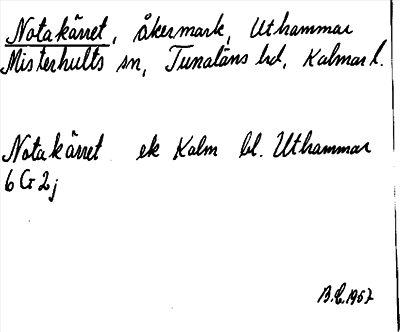 Notakärret, åkermark, Uthammar
Misterhults sn, Tunaläns hd, Kalmar l.
Notakärret ek Kalm bl. Uthammar
6 G 2 j
1957